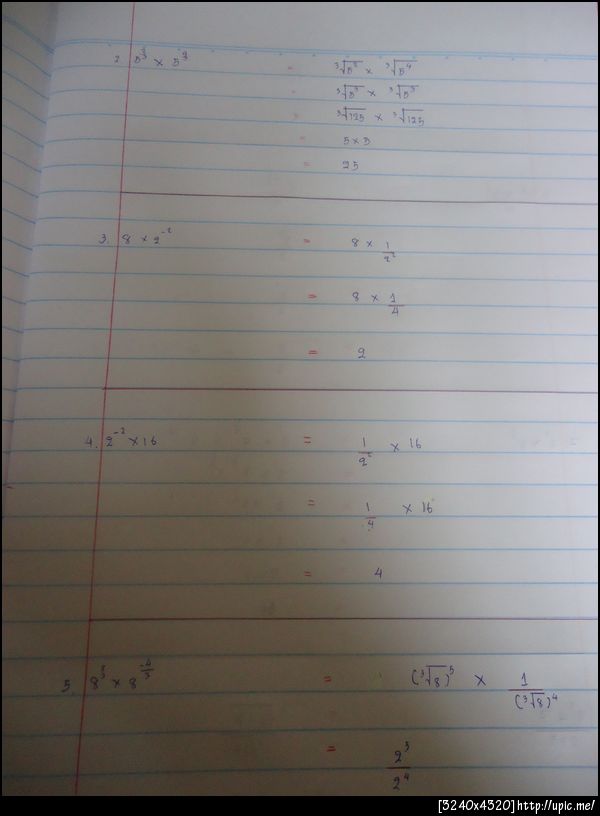 2. 5 × 5 = ∛5² × ∛5⁴
= ∛5³ × ∛5³
= ∛125 × ∛125
= 5 × 5
= 25
3. 8 × 2⁻² = 8 × 1/2²
= 8 × 1/4
= 2
4. 2⁻² × 16 = 1/2² × 16
= 1/4 × 16
= 4
5. 8 × 8^(-4/3) = (∛8)⁵ × 1/(∛8)⁴
= 2⁵/2⁴
[3240x4320]http://upic.me/